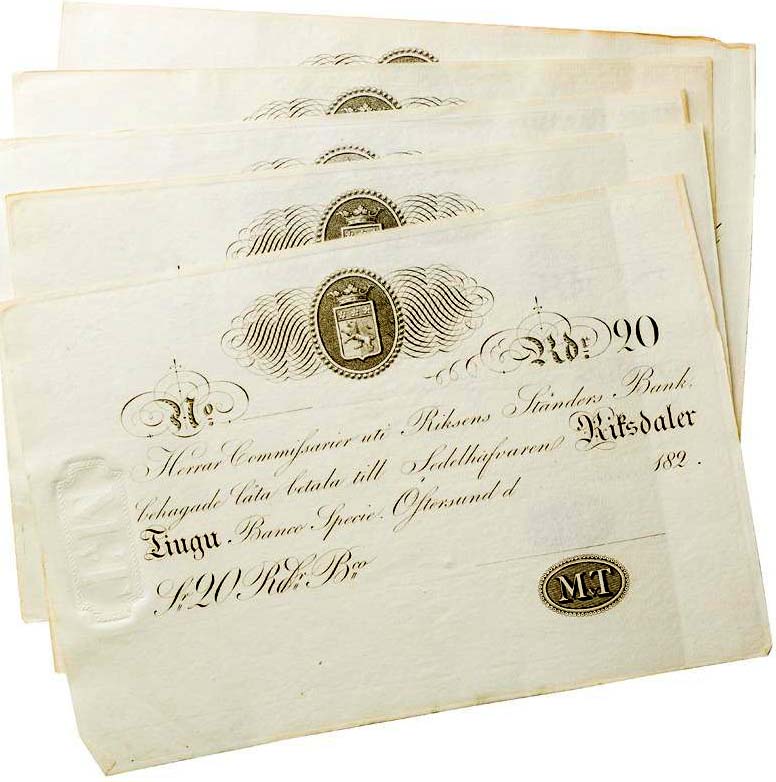 Rdr. 20
No.
Herrar Commissarier uti Riksens Ständers Bank.
behagade låta betala till Sedelhafvaren Riksdaler
Tjugu. Banco Specie. Östersund d 182 .
Sr. 20 Rdr. Bco
M.T